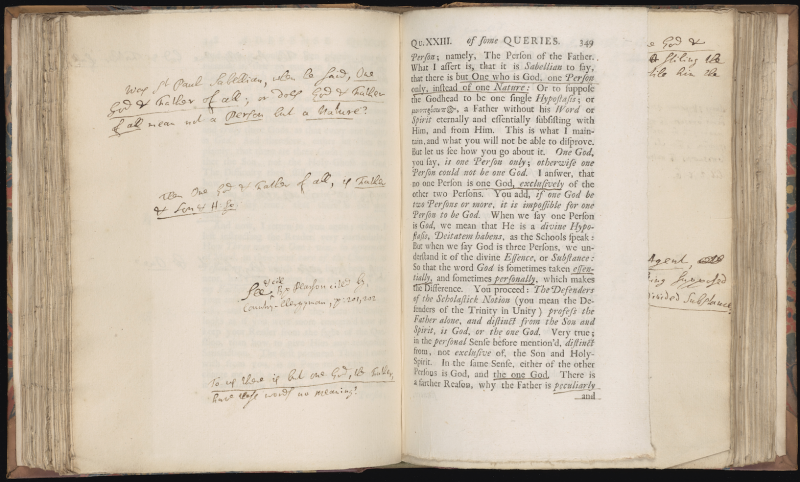 Was St Paul Sabellian, when he said, One
God & Father of all; or does God & Father
of all mean not a Person but a Nature?
then One God & Father of all, is Father
& Son & H.
See
Clergyman, p. 201, 202
To us there is but one God, the Father,
have these words no meaning?
QU. XXIII. of ſome QUERIES. 349
Perſon; namely, The Perſon of the Father.
What I aſſert is, that it is Sabellian to ſay,
that there is but One who is God, one Perſon
only, inſtead of one Nature: Or to ſuppoſe
the Godhead to be one ſingle Hypoſtaſis; or
a Father without his Word or
Spirit eternally and eſſentially ſubſiſting with
Him, and from Him. This is what I main-
tain, and what you will not be able to diſprove.
But let us ſee how you go about it. One God,
you ſay, is one Perſon only; otherwiſe one
Perſon could not be one God. I anſwer, that
no one Perſon is one God, excluſively of the
other two Perſons. You add, if one God be
two Perſons or more, it is impoſſible for one
Perſon to be God. When we ſay one Perſon
is God, we mean that He is a divine Hypo-
ſtaſis, Deitatem habens, as the Schools ſpeak:
But when we ſay God is three Perſons, we un-
derſtand it of the divine Eſſence, or Subſtance:
So that the word God is ſometimes taken eſſen-
tially, and ſometimes perſonally, which makes
the Difference. You proceed: The Defenders
of the Scholaſtick Notion (you mean the De-
fenders of the Trinity in Unity) profeſs the
Father alone, and diſtinct from the Son and
Spirit, is God, or the one God. Very true;
in the perſonal Senſe before mention'd, diſtinct
from, not excluſive of, the Son and Holy-
Spirit. In the ſame Senſe, either of the other
Perſons is God, and the one God. There is
a farther Reaſon, why the Father is peculiarly
and
God &
ſtiling the
him the
Agent,
ſuppoſed
divided Subſtance.